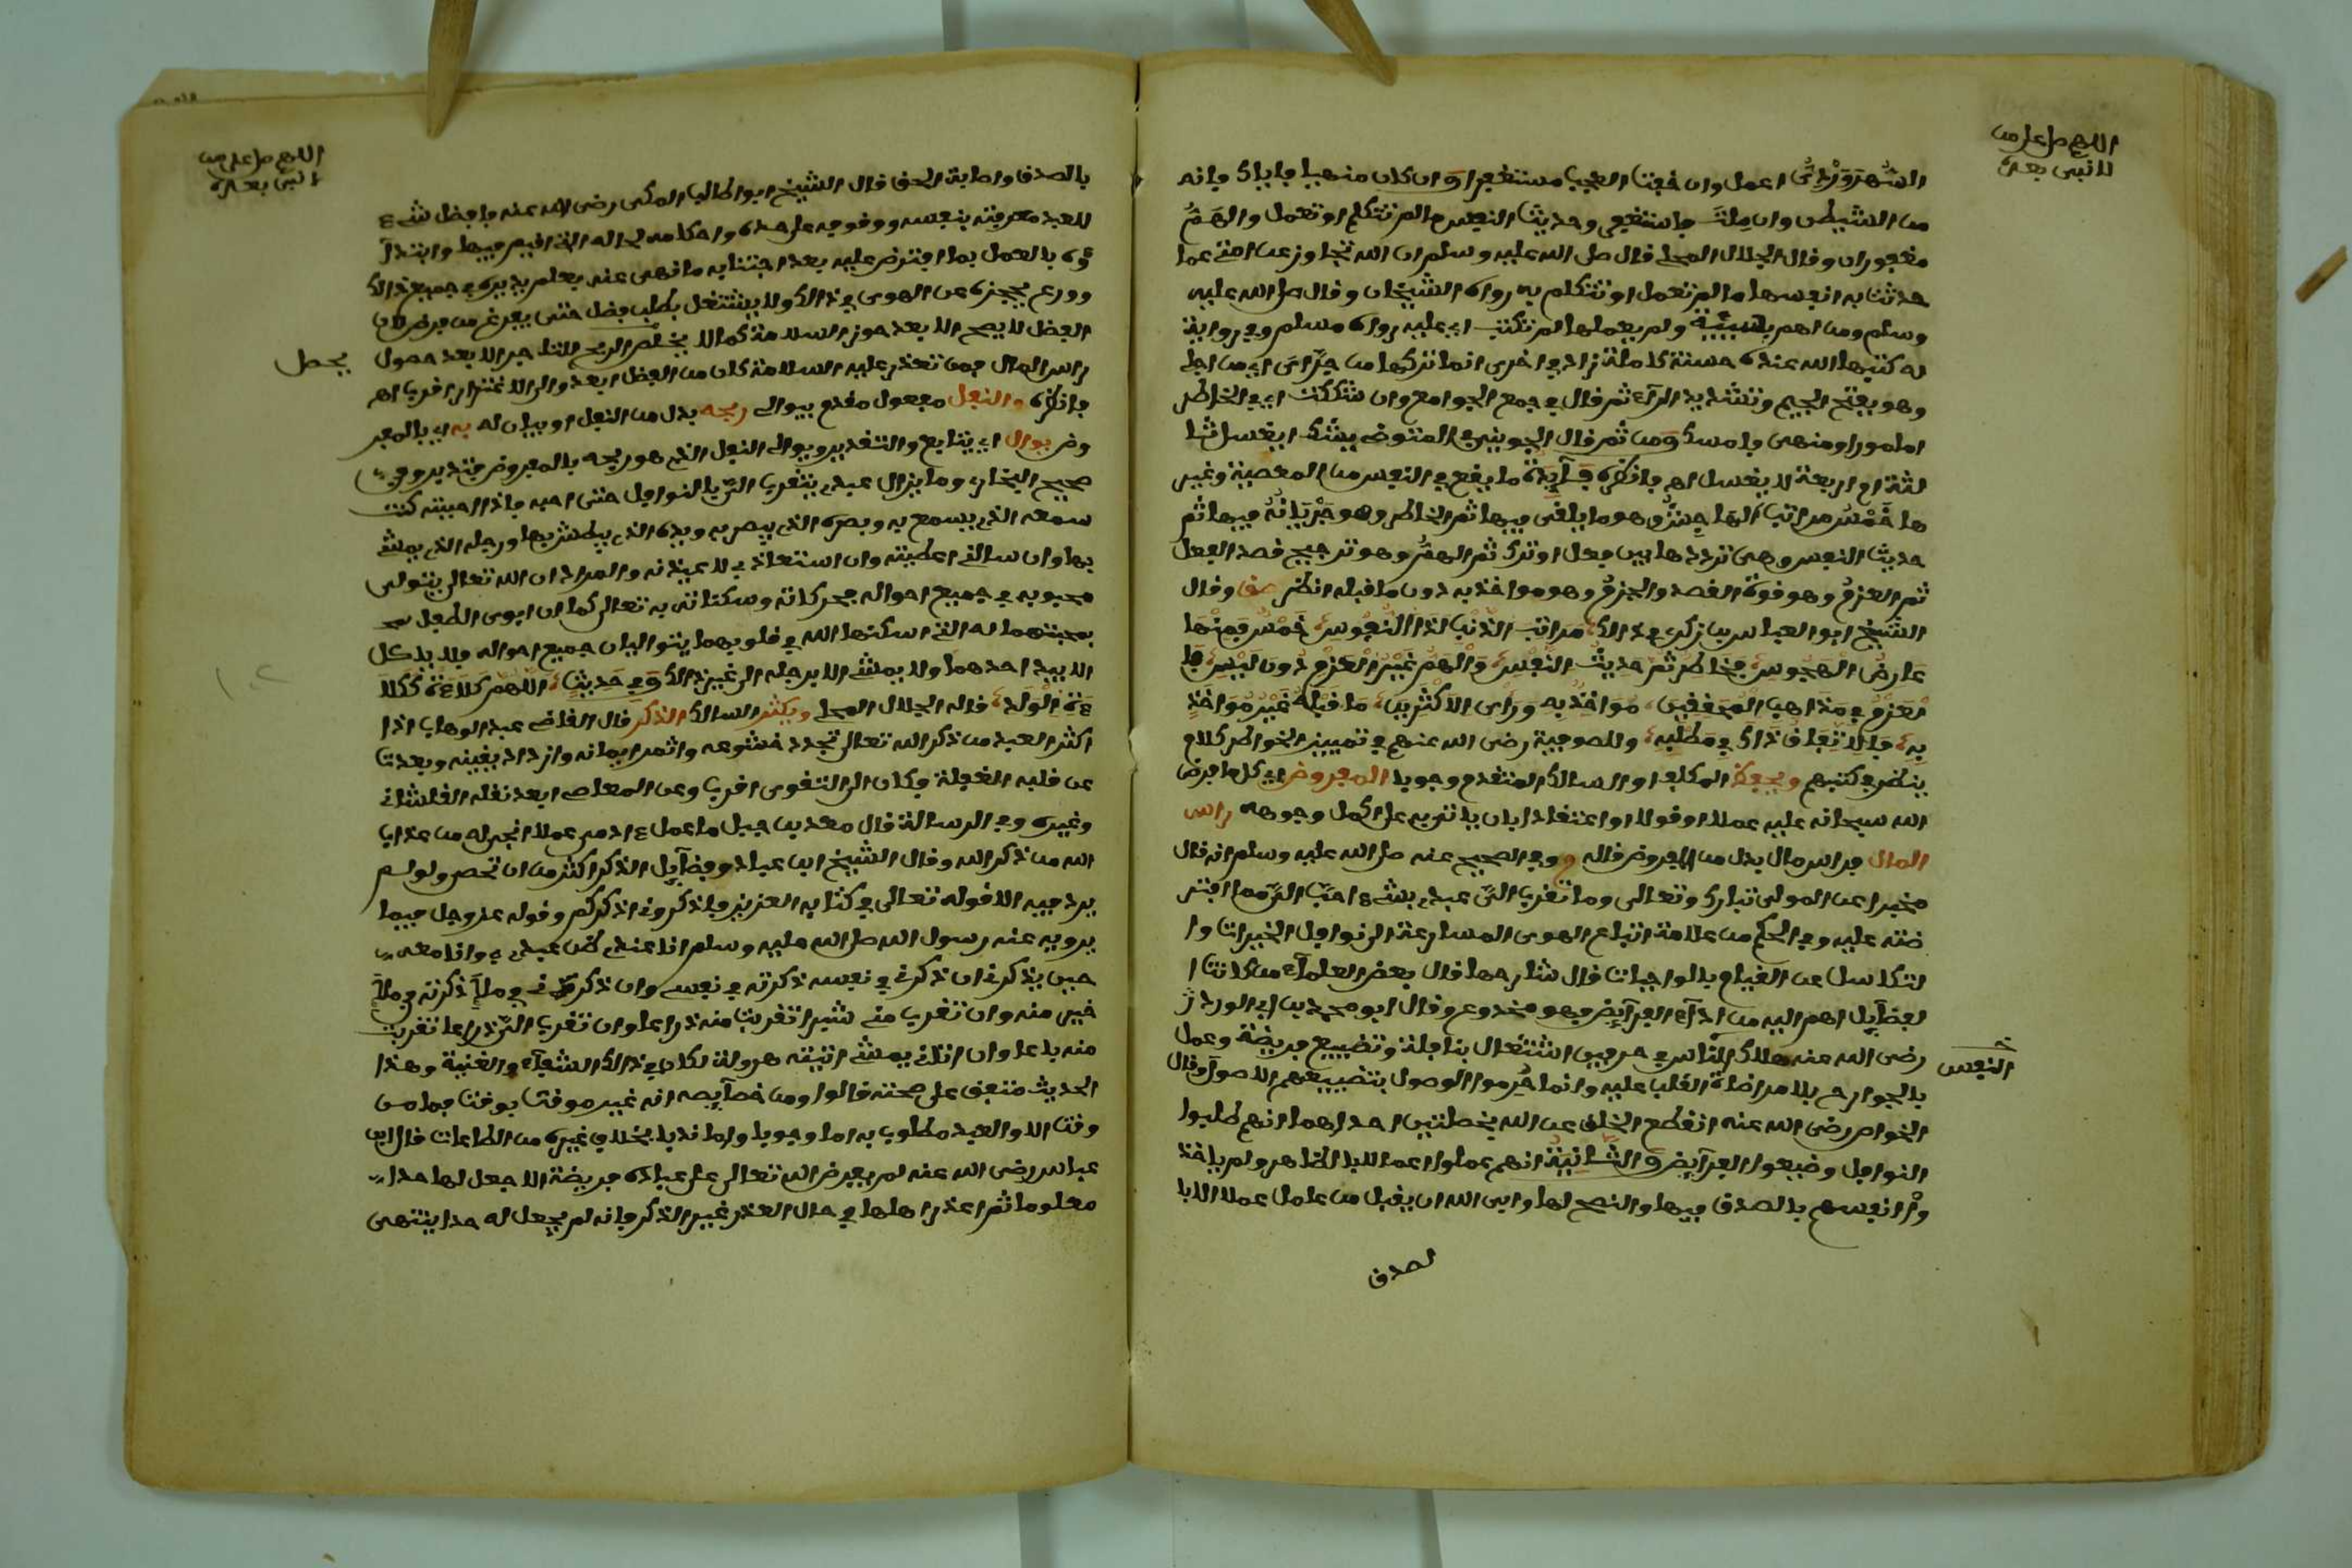 اللهم صل على من
لا نبي بعده
السُّهْرَوَرْدِىُّ اعمل وان خفت العجب مستغفرا وَان كان منهيا فاياك فانه
من الشيطن وان مِلتَ فاستغفر وحديث النفس ما لم تتكلم او تعمل والهَمُّ
مغفوران وقال الجلال المحلى قال صلى الله عليه وسلم ان الله تجاوز عن امتى عما
حدثت به انفسها ما لم تعمل او تتكلم به رواه الشيخان وقال صلى الله عليه
وسلم ومن اهم بسيئة ولم يعملها لم تكتب اى عليه رواه مسلم وفى رواية
له كتبها الله عنده حسنة كاملة زاد فى اخرى انما تركها من جَرَّاىَ اى من اجلى
وهو بفتح الجيم وتشديد الرآء ثم قال فى جمع الجوامع وان شككت اى فى الخاطر
امامورا ومنهى فامسك وَمن ثم قال الجوينى فى المتوضى يشك ايغسل ثا
لثة ام اربعة لا يغسل اهـ فانظره فَآيِدَةٌ ما يقع فى النفس من المعصية وغير
ها خَمْسُ مراتب الهَاجِسُ وهو ما يلقى فيها ثم الخاطر وهو جَرَيَانُهُ فيها ثم
حديث النفس وهى ترددها بين فعل او ترك ثم الهمُّ وهو ترجيح قصد الفعل
ثم العزمُ وهو قوة القصد والجزمُ وهو مواخذ به دون ما قبله انظر وقال
الشيخ ابو العباس بن زكرى فى ذالك مَراتب الذنب لذا النُّفُوسِ خَمْسٌ فَمِنْهَا
عَارِضُ الْهُجُوسِ فَخاطِرٌ ثمَّ حَدِيثُ النَّفْسِ وَالْهَمُّ غَيْرُ الْعَزْمِ دُونَ لَبْسِ فا
لْعَزْمُ فى مَذاهب الْمُحَقِّقِينَ مُوَاخَذٌ بِهِ وَرَأْى الأَكْثَرِينَ مَا قَبْلَهُ غَيْرُ مُوَاخَذٍ
بِهِ وللصوفية رضى الله عنهم فى تمييز الخواطر كلام
ينظر فى كتبهم ويحفظ المكلف او السالك المتقدم وجوبا المفروض اى كل ما فرض
الله سبحانه عليه عملا او قولا او اعتقادا بان ياتى به على اكمل وجوهه راس
المال فراس مال بدل من المفروض قاله وفى الصحيح عنه صلى الله عليه وسلم انه قال
مخبرا عن المولى تبارك وتعالى وما تقرب الىّ عبدى بشىء احبّ الىّ مما افتر
ضته عليه وفى الحكم من علامة اتباع الهوى المسارعة الى نوافل الخيرات وا
لتكاسل عن القيام بالواجبات قال شارحها قال بعض العلمآء من كانت ا
لفضآيل اهم اليه من ادآء الفرآيض فهو مخدوع وقال ابو محمد بن ابى الورد
رضى الله عنه هلاك الناس فى حرفين اشتغال بنافلة وتضييع فريضة وعمل
النفس
بالجوارح بلا مواطاة القلب عليه وانما حُرموا الوصول بتضييعهم الاصول وقال
الخواص رضى الله عنه انقطع الخلق عن الله بخصلتين احداهما انهم طلبوا
النوافل وضيعوا الفرآيض وَالثَّانِيَةُ انهم عملوا اعمالا بالظاهر ولم ياخذ
وا انفسهم بالصدق فيها والنصح لها وابى الله ان يقبل من عامل عملا الا با
لصدق
اللهم صل على من
لا نبي بعده
بالصدق واصابة الحق قال الشيخ ابو اطالب المكى رضى الله عنه فافضل شىء
للعبد معرفته بنفسه ووقوفه على حده واحكامه لحاله التى اقيم فيها وابتدآ
ؤه بالعمل بما افترض عليه بعد اجتنابه ما نهى عنه بعلم يدبره فى جميع ذالك
وورع يحجزه عن الهوى فى ذالك ولا يشتغل بطلب فضل حتى يفرغ من فرض لان
الفضل لا يصح الا بعد حوز السلامة كما لا يخلص الربح للتاجر الا بعد حصول
يحصل
راس المال فمن تعذر عليه السلامة كان من الفضل ابعد والى الاغترار اقرب اهـ
فانظره والنفل مفعول مقدم بيوالى ربحه بدل من النفل او بيان له به اى بالمفر
وض يوالى اى يتابع والتقدير ويوالى النفل الذى هو ربحه بالمفروض وفى
صحيح البخارى وما يزال عبدى يتقرب الىّ بالنوافل حتى احبه فاذا احببته كنت
سمعه الذى يسمع به وبصره الذى يبصر به ويده الذى يبطش بها ورجله الذى يمشى
بها وان سالنى اعطيته وان استعاذ بى لاعيذنه والمراد ان الله تعالى يتولى
محبوبه فى جميع احواله فحركاته وسكناته به تعالى كما ان ابوى الطفل
بمحبتهما له التى اسكنها الله فى قلوبهما يتواليان جميع احواله فلا ياكل
الا بيد احدهما ولا يمشى الا برجله الى غير ذالك وَفى حَدِيثٍ اللَّهُمَّ كلاءَةً كَكلا
ءَةِ الْوَلِيدِ قاله الجلال المحلى ويكثر السالك الذكر قال القاضى عبد الوهاب اذا
اكثر العبد من ذكر الله تعالى تجدد خشوعه واثمر ايمانه وازداد يقينه وبعدت
عن قلبه الغفلة وكان الى التقوى اقرب وعن المعاصى ابعد نقله القلشانى
وغيره وفى الرسالة قال معاذ بن جبل ما عمل ءادمى عملا انجى له من عذاب
الله من ذكر الله وقال الشيخ ابن عباد وفضآيل الذكر اكثر من ان تحصر ولو لم
يرد فيه الا قوله تعالى فى كتابه العزيز فاذكرونى اذكركم وقوله عز وجل فيما
يرويه عنه رسول الله صلى الله عليه وسلم انا عند ظن عبدى بى وانا معه
حين يذكرنى ان ذكرنى فى نفسه ذكرته فى نفسى وان ذكرنى فى ملإ ذكرته فى ملإ
خير منه وان تقرب منى شبرا تقربت منه ذراعا وان تقرب الىّ ذراعا تقربت
منه باعا وان اتانى يمشى اتيته هرولة لكان فى ذالك الشفآء والغنية وهذا
الحديث متفق على صحته قالوا ومن خصآيصه انه غير موقت بوقت فما من
وقت الا والعبد مطلوب به اما وجوبا واما ندبا بخلاف غيره من الطاعات قال ابن
عباس رضى الله عنه لم يفرض الله تعالى على عباده فريضة الا جعل لها حدا
معلوما ثم اعذر اهلها فى حال العذر غير الذكر فانه لم يجعل له حدا ينتهى